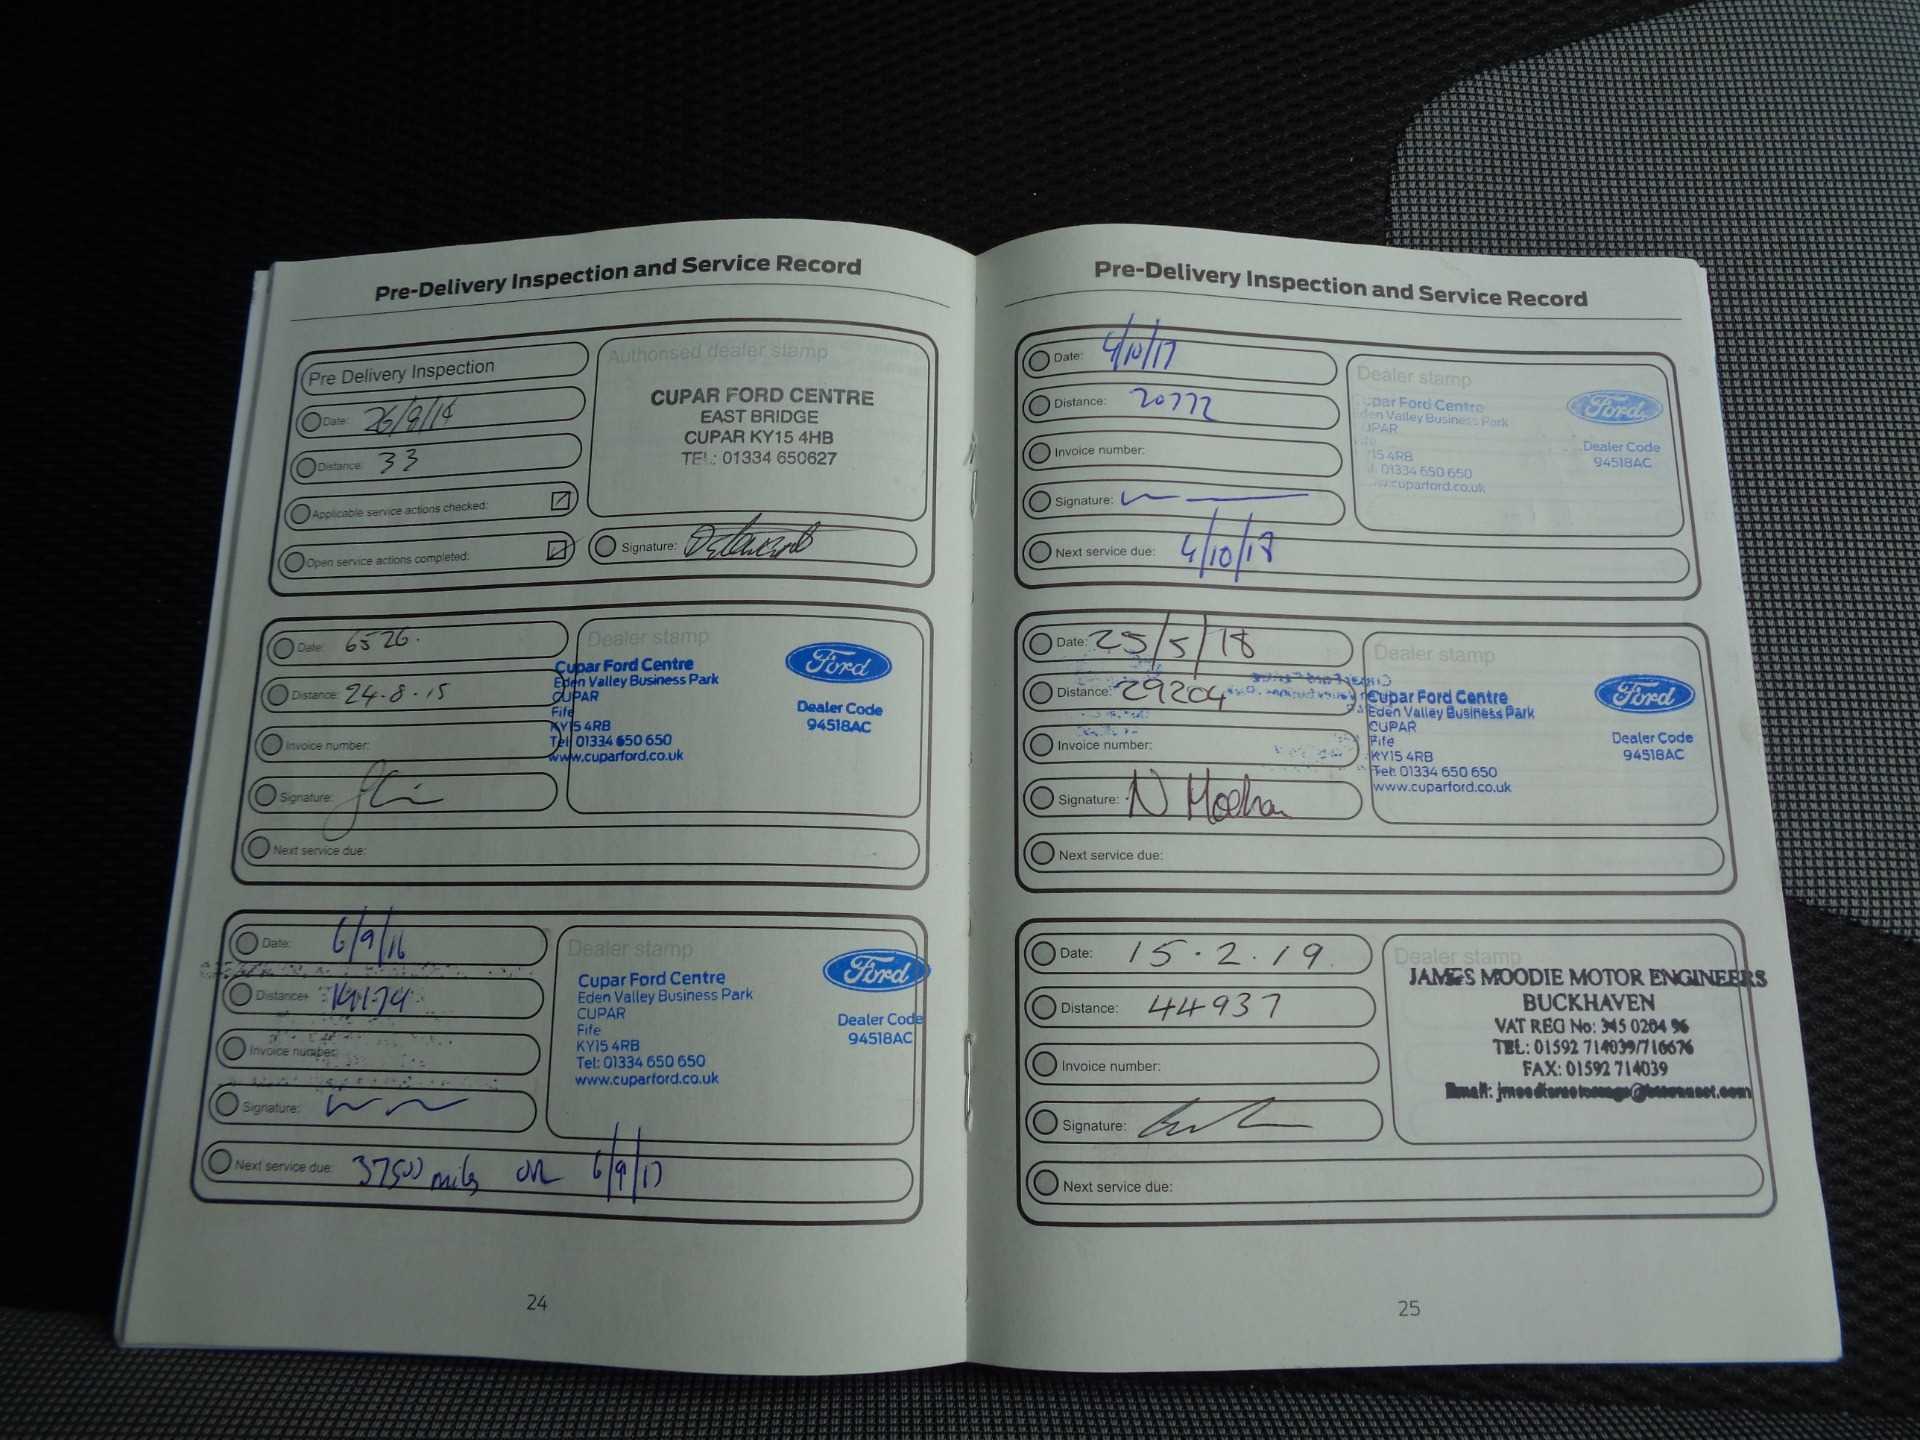 Pre-Delivery Inspection and Service Record
Pre Delivery Inspection
Date: 26/8/14
Distance: 33
Applicable service actions checked:
Open service actions completed:
Authorised dealer stamp
CUPAR FORD CENTRE
EAST BRIDGE
CUPAR KY15 4HB
TEL: 01334 650627
Signature:
Date: 6526.
Distance: 24.8.15
Invoice number:
Signature:
Next service due:
Dealer stamp
Cupar Ford Centre
Eden Valley Business Park
CUPAR
Fife
KY15 4RB
Tel: 01334 650 650
www.cuparford.co.uk
Ford
Dealer Code
94518AC
Date: 6/9/16
Distance: 14174
Invoice number:
Signature:
Next service due: 37500 miles OR 6/9/17
Dealer stamp
Cupar Ford Centre
Eden Valley Business Park
CUPAR
Fife
KY15 4RB
Tel: 01334 650 650
www.cuparford.co.uk
Ford
Dealer Code
94518AC
24
Pre-Delivery Inspection and Service Record
Date: 4/10/17
Distance: 20772
Invoice number:
Signature:
Next service due: 4/10/18
Dealer stamp
Cupar Ford Centre
Eden Valley Business Park
CUPAR
Fife
KY15 4RB
Tel: 01334 650 650
www.cuparford.co.uk
Ford
Dealer Code
94518AC
Date: 25/5/18
Distance: 29204
Invoice number:
Signature: N Meehan
Next service due:
Dealer stamp
Cupar Ford Centre
Eden Valley Business Park
CUPAR
Fife
KY15 4RB
Tel: 01334 650 650
www.cuparford.co.uk
Ford
Dealer Code
94518AC
Date: 15.2.19.
Distance: 44937
Invoice number:
Signature:
Next service due:
Dealer stamp
JAMES MOODIE MOTOR ENGINEERS
BUCKHAVEN
VAT REG No: 345 0204 96
TEL: 01592 714039/716676
FAX: 01592 714039
Email:
25